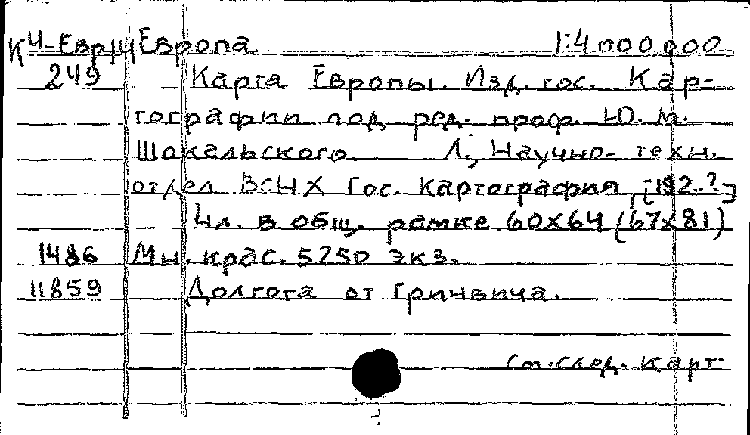 К 4-Евр/4 Европа 1:4 000 000
249 Карта Европы. Изд. гос. Кар-
тографии под ред. проф. Ю. М.
Шокальского. Л., Научно-техн.
отдел ВСНХ Гос. Картография, [192.?]
4л. в общ. рамке 60х64 (67х81)
1486 Мн. крас. 5250 экз.
11859 Долгота от Гринвича.
См. след. карт